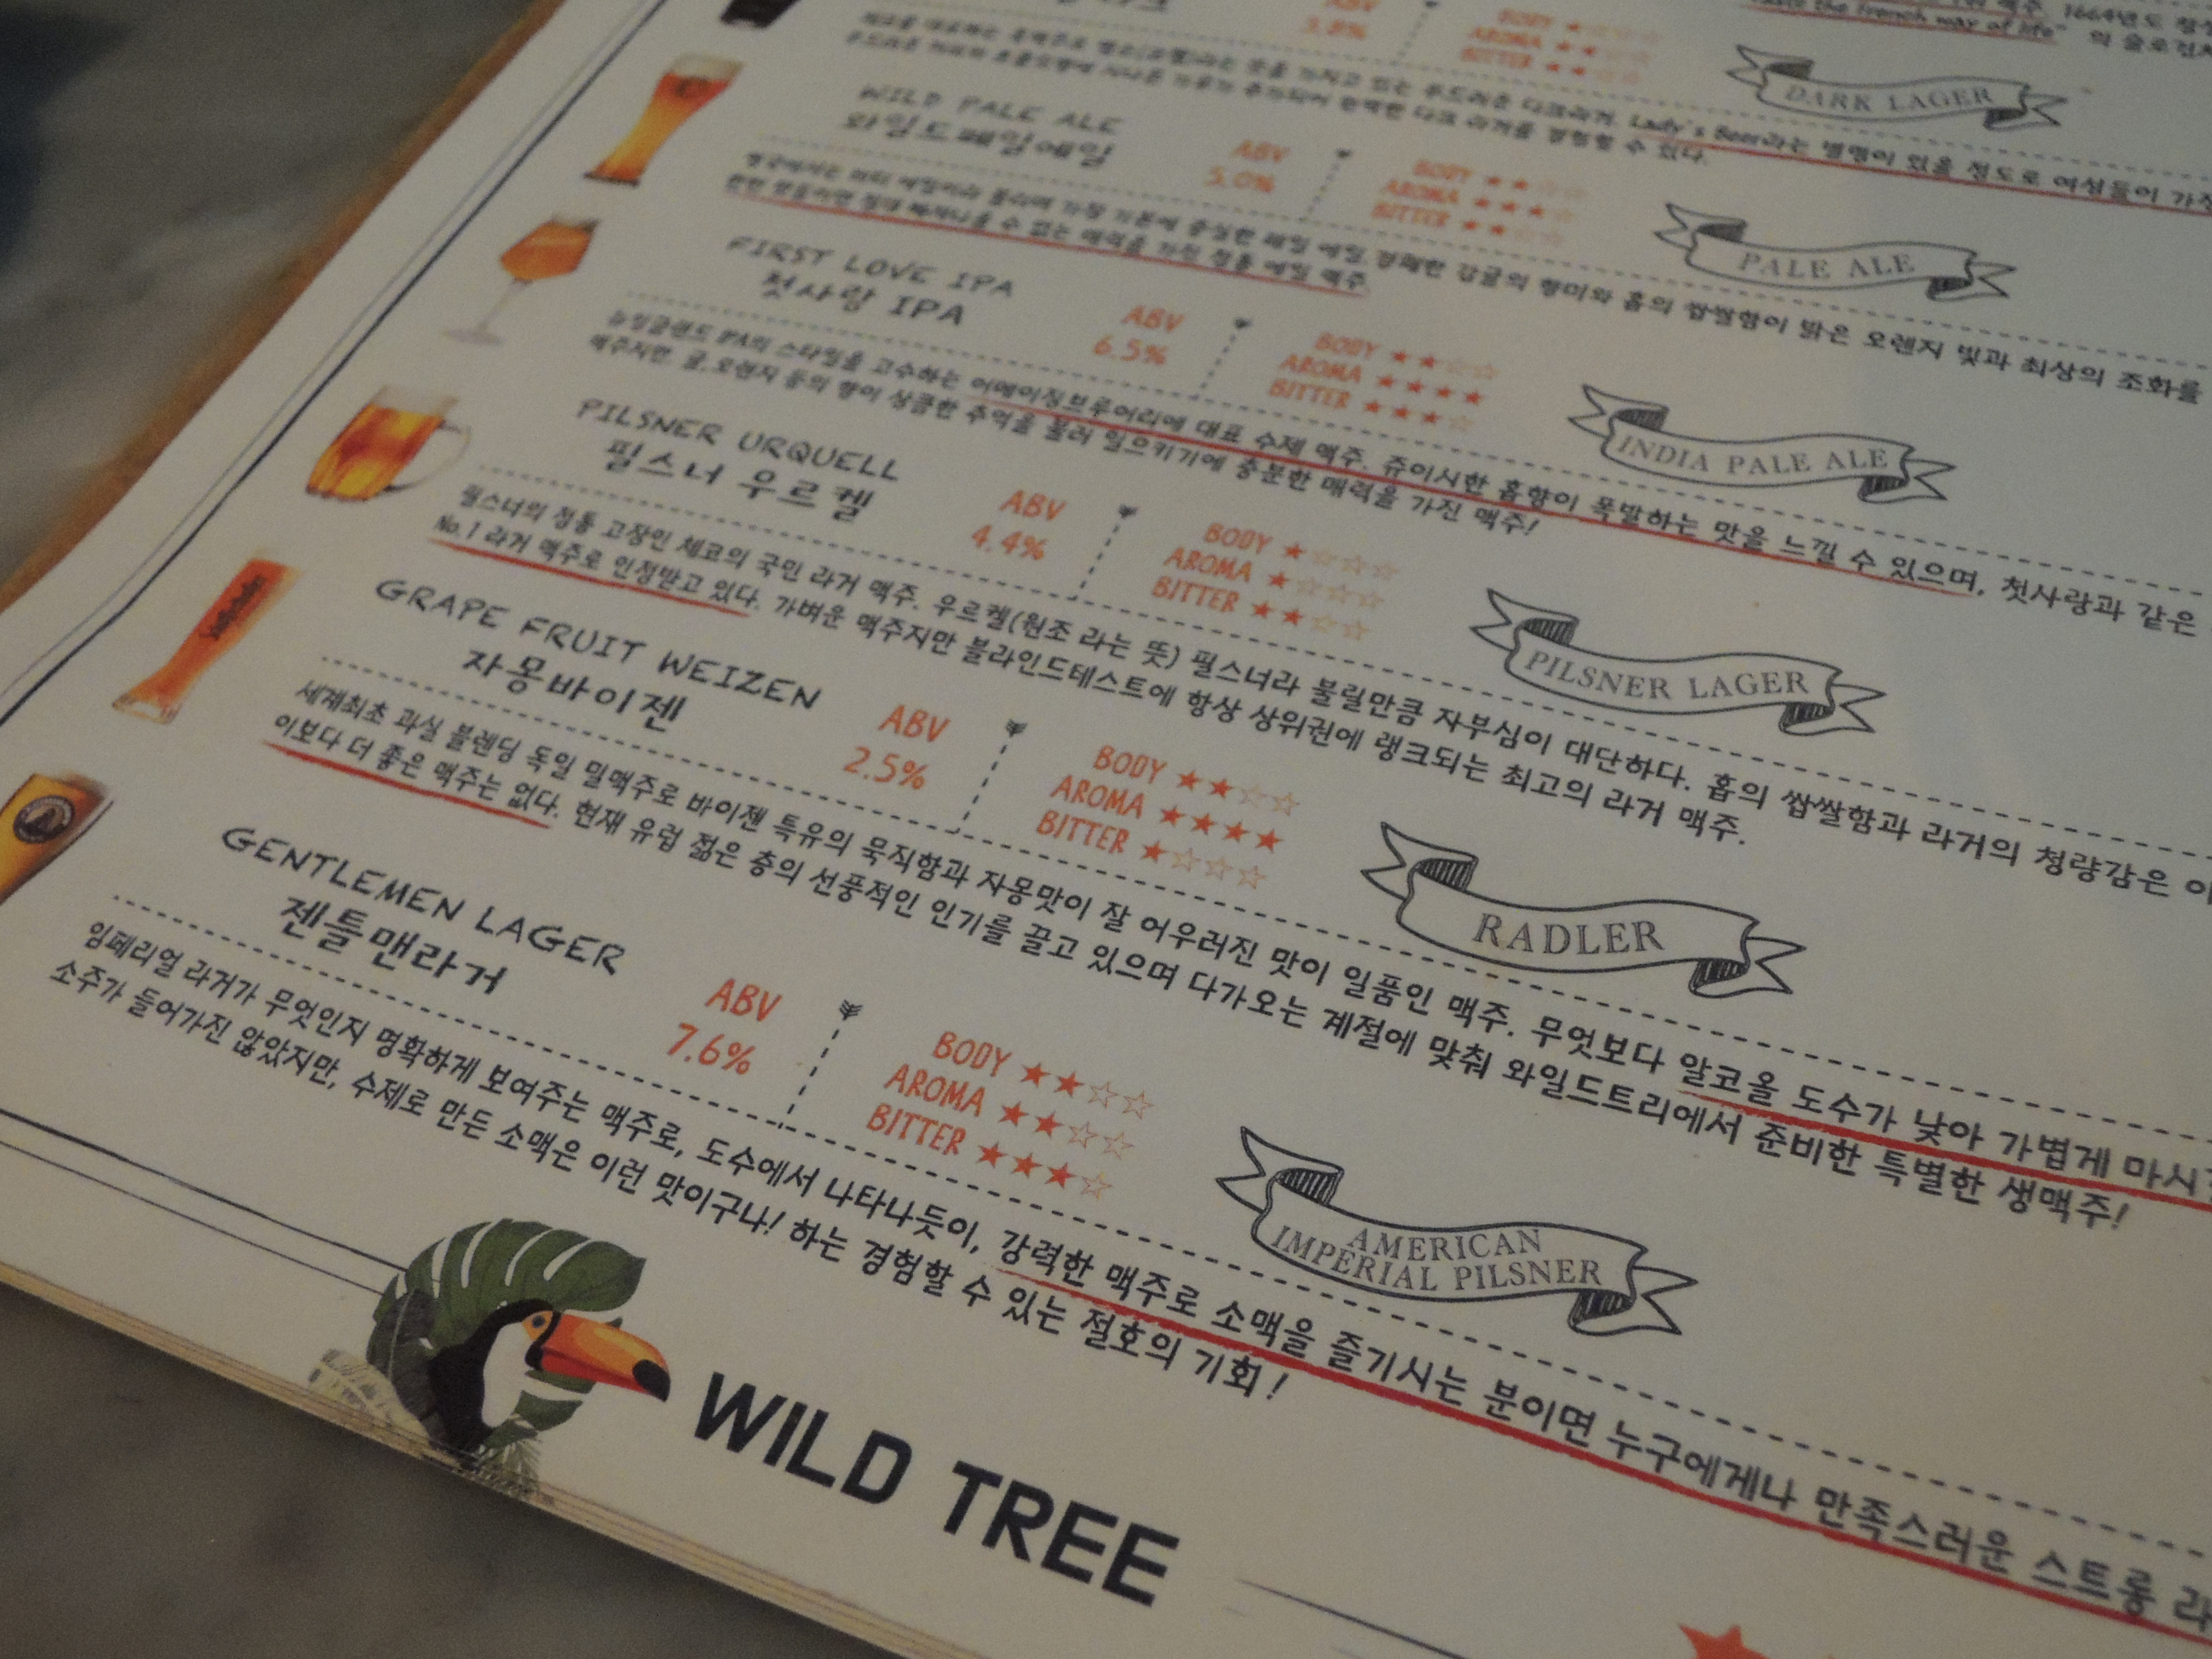 맥주. 1664년도
"Taste the French way of life" 의 슬로건
3.8%
BODY
AROMA
BITTER
DARK LAGER
Lady's Beer라는 별명이 있을 정도로 여성들이 가장
부드러운 다크 라거를 경험할 수 있다.
WILD PALE ALE
와일드페일에일
ABV
5.0%
BODY ★★☆☆
AROMA ★★★☆
BITTER ★★☆☆
PALE ALE
영국에서는 비터 에일이라 불리며 가장 기본에 충실한 페일 에일. 경쾌한 감귤의 향미와 홉의 쌉쌀함이 밝은 오렌지 빛과 최상의 조화를
한번 맛들이면 절대 빠져나올 수 없는 매력을 가진 정통 에일 맥주.
FIRST LOVE IPA
첫사랑 IPA
ABV
6.5%
BODY ★★☆☆
AROMA ★★★★
BITTER ★★★☆
INDIA PALE ALE
뉴잉글랜드 IPA의 스타일을 고수하는 어메이징브루어리에 대표 수제 맥주. 쥬이시한 홉향이 폭발하는 맛을 느낄 수 있으며, 첫사랑과 같은
맥주지만 귤,오렌지 등의 향이 상큼한 추억을 불러 일으키기에 충분한 매력을 가진 맥주!
PILSNER URQUELL
필스너 우르켈
ABV
4.4%
BODY ★☆☆☆
AROMA ★☆☆☆
BITTER ★★☆☆
PILSNER LAGER
필스너의 정통 고장인 체코의 국민 라거 맥주. 우르켈(원조 라는 뜻) 필스너라 불릴만큼 자부심이 대단하다. 홉의 쌉쌀함과 라거의 청량감은
No.1 라거 맥주로 인정받고 있다. 가벼운 맥주지만 블라인드테스트에 항상 상위권에 랭크되는 최고의 라거 맥주.
GRAPE FRUIT WEIZEN
자몽바이젠
ABV
2.5%
BODY ★★☆☆
AROMA ★★★★
BITTER ★☆☆☆
RADLER
세계최초 과실 블렌딩 독일 밀맥주로 바이젠 특유의 묵직함과 자몽맛이 잘 어우러진 맛이 일품인 맥주. 무엇보다 알코올 도수가 낮아 가볍게 마시기
이보다 더 좋은 맥주는 없다. 현재 유럽 젊은 층의 선풍적인 인기를 끌고 있으며 다가오는 계절에 맞춰 와일드트리에서 준비한 특별한 생맥주!
GENTLEMEN LAGER
젠틀맨라거
ABV
7.6%
BODY ★★☆☆
AROMA ★★☆☆
BITTER ★★★☆
AMERICAN
IMPERIAL PILSNER
임페리얼 라거가 무엇인지 명확하게 보여주는 맥주로, 도수에서 나타나듯이, 강력한 맥주로 소맥을 즐기시는 분이면 누구에게나 만족스러운 스트롱
소주가 들어가진 않았지만, 수제로 만든 소맥은 이런 맛이구나! 하는 경험할 수 있는 절호의 기회!
WILD TREE